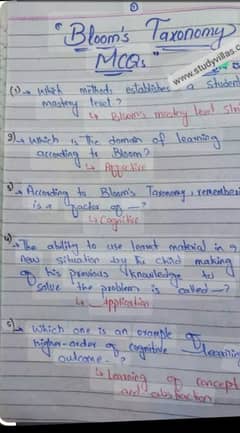 ①
"Bloom's Taxonomy
MCQs"
www.studyvillas.
(1)→ which methods establishes a student
mastery level?
↳ Bloom's mastery level str
2)→ which is the domain of learning
according to Bloom?
↳ Affective
3)→ According to Bloom's Taxonomy, remember
is a factor of —?
↳ Cognitive
4)→ The ability to use learnt material in a
new situation by the child making
of his previous knowledge to
solve the problem is called —?
↳ Application
5)→ which one is an example of
higher-order of cognitive learnin
outcome —?
↳ Learning of concept
and abstraction